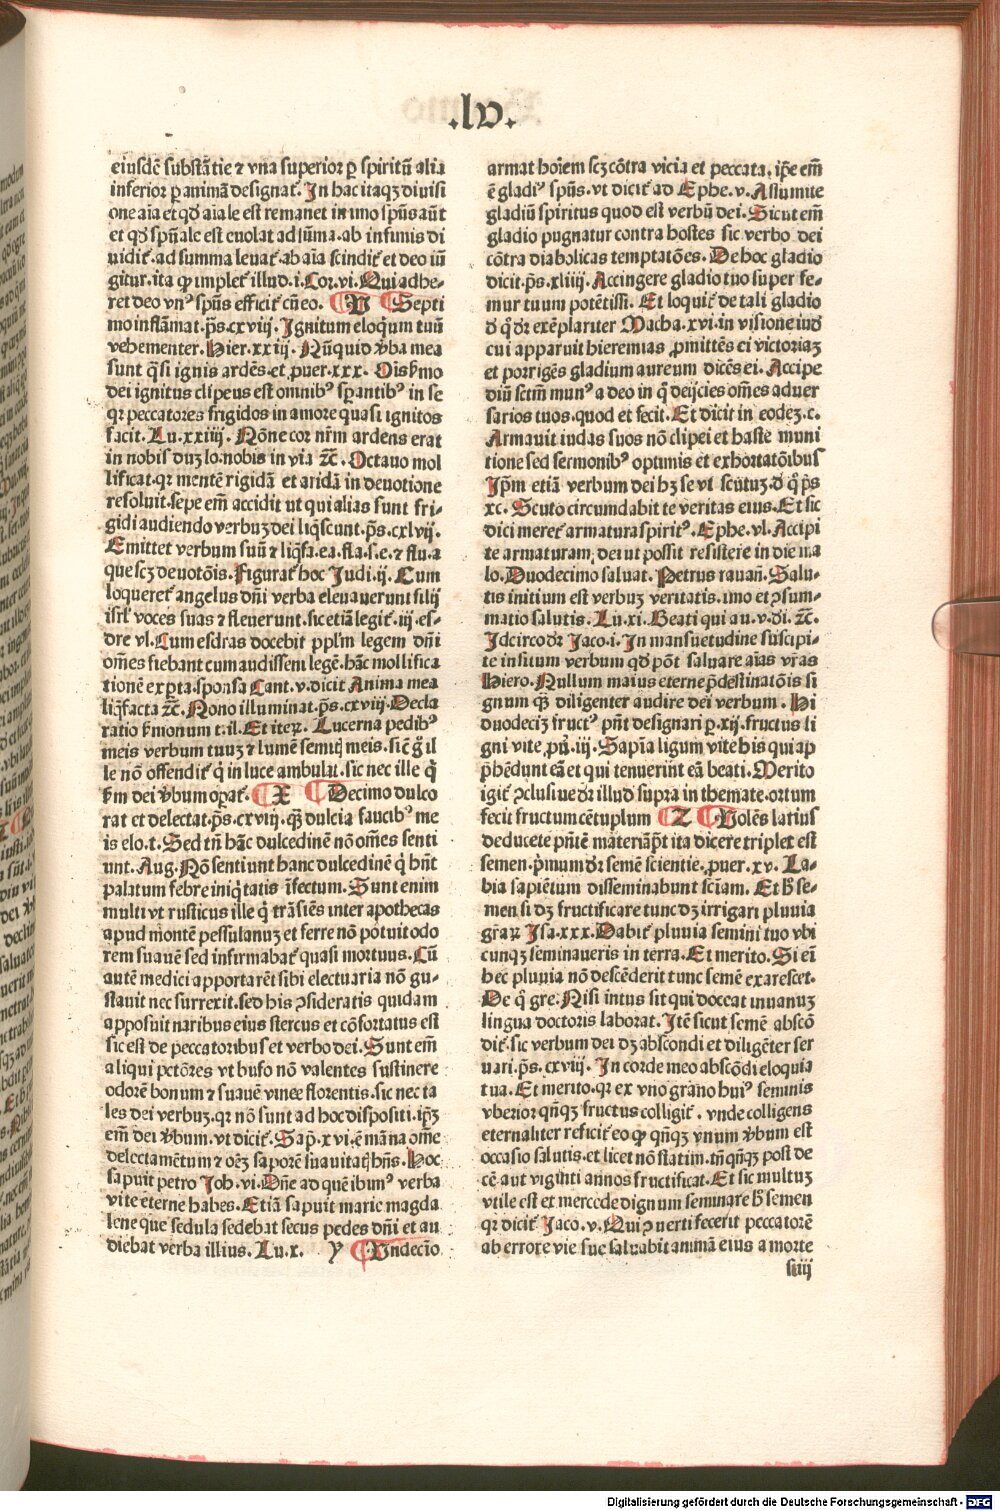 .lv.
eiusdē substātie ⁊ vna superior ꝑ spiritū alia
inferior ꝑ animā designat᷑. In hac itaqꝫ diuisi
one aīa et qđ aīale est remanet in imo spūs aūt
et qđ spūale est euolat ad sūma. ab infimis di
uidit᷑. ad summa leuat᷑. ab aīa scindit᷑ et deo iū
gitur. ita ꝙ implet᷑ illud .i. Cor. vi. Qui adhe-
ret deo vnꝰ spūs efficit᷑ cū eo. V Septi
mo inflāmat. ps. cxviij. Ignitum eloqum tuū
vehementer. Hier. xxiij. Nūquid v̾ba mea
sunt qͣsi ignis ardēs. et ꝓuer. xxx. Oīs s̾mo
dei ignitus clipeus est omnibꝰ spantibꝰ in se
qꝛ peccatores frigidos in amore quasi ignitos
facit. Lu. xxiiij. Nōne cor nr̄m ardens erat
in nobis duꝫ lo. nobis in via ⁊c̄. Octauo mol
lificat. qꝛ mentē rigidā et aridā in deuotione
resoluit. sepe em̄ accidit ut qui alias sunt fri-
gidi audiendo verbuꝫ dei liq̄scunt. ps. cxlvij.
Emittet verbum suū ⁊ liq̄fa. ea. fla. s. e. ⁊ flu. a
que scꝫ deuotōis. Figurat᷑ hoc Judi. ij. Cum
loqueret᷑ angelus dn̄i verba eleuauerunt filij
isrl̄ voces suas ⁊ fleuerunt. sic etiā legit᷑. iij. es-
dre vl. Cum esdras docebit ppl̄m legem dn̄i
om̄es fiebant cum audissent legē. hāc mollifica
tionē exꝑta. sponsa Cant. v. dicit Anima mea
liq̄facta ⁊c̄. Nono illuminat. ps. cxviij. Decla
ratio s̾monum t. il. Et iteꝝ. Lucerna pedibꝰ
meis verbum tuuꝫ ⁊ lumē semitꝭ meis. sic̄ g̊ il
le nō offendit᷑ qͥ in luce ambulat. sic nec ille qͥ
s̾m dei v̾bum opat᷑. X Decimo dulco
rat et delectat. ps. cxviij. qͣꝫ dulcia faucibꝰ me
is elo. t. Sed tn̄ hāc dulcedinē nō om̄es senti
unt. Aug. Nō sentiunt hanc dulcedinē qͥ hn̄t
palatum febre iniqͥtatis īfectum. Sunt enim
multi vt rusticus ille qͥ trāsiēs inter apothecas
apud montē pessulanuꝫ et ferre nō potuit odo
rem suauē sed infirmabat᷑ quasi mortuus. Cū
autē medici apportarēt sibi electuaria nō gu-
stauit nec surrexit. sed his ꝯsideratis quidam
apposuit naribus eius stercus et cōfortatus est
sic est de peccatoribus et verbo dei. Sunt em̄
aliqui pctōres vt bufo nō valentes sustinere
odorē bonum ⁊ suauē vinee florentis. sic nec ta
les dei verbuꝫ. qꝛ nō sunt ad hoc dispositi. ip̄ꝫ
em̄ dei v̾bum. vt dicit᷑. Sap. xvi. ē māna om̄e
delectamētum ⁊ oēꝫ saporē suauitatꝭ hn̄s. Hoc
sapuit petro Joh. vi. Dn̄e ad quē ibimꝰ verba
vite eterne habes. Etiā sapuit marie magda
lene que sedula sedebat secus pedes dn̄i et au
diebat verba illius. Lu. x. y Undecīo
armat hoīem scꝫ cōtra vicia et peccata. ip̄e em̄
ē gladiꝰ spūs. vt dicit᷑ ad Ephe. v. Assumite
gladiū spiritus quod est verbū dei. Sicut em̄
gladio pugnatur contra hostes sic verbo dei
cōtra diabolicas temptatōes. De hoc gladio
dicit᷑ ps. xliiij. Accingere gladio tuo super fe-
mur tuum potētissi. Et loquit᷑ de tali gladio
đ qͦ dr̄ exēplariter Macha. xvi. in visione iude
cui apparuit hieremias ꝓmittēs ei victoriaꝫ
et porrigēs gladium aureum dicēs ei. Accipe
diū sctm̄ munꝰ a deo in qͦ deijcies om̄es aduer
sarios tuos. quod et fecit. Et dicit in eodeꝫ. c.
Armauit iudas suos nō clipei et haste muni
tione sed sermonibꝰ optimis et exhortatōibus
Ip̄m etiā verbum dei hꝫ se vt scutuꝫ. đ qͦ ps
xc. Scuto circumdabit te veritas eius. Et sic
dici meret᷑ armatura spiritꝰ. Ephe. vl. Accipi
te armaturam dei ut possit resistere in die ma
lo. Duodecimo saluat. Petrus rauan̄. Salu-
tis initium est verbuꝫ veritatis. imo et ꝯsum-
matio salutis. Lu. xi. Beati qui au. v. di. ⁊c̄.
Idcirco dr̄ Jaco. i. In mansuetudine suscipi-
te insitum verbum qđ pōt saluare aīas vr̄as
Hiero. Nullum maius eterne p̄destinatōis si
gnum qͣꝫ diligenter audire dei verbum. Hi
duodeciꝫ fructꝰ pn̄t designari ꝑ. xij. fructus li
gni vite ꝓu̾. iij. Sapīa ligum vite his qui ap
p̄hēdunt eā et qui tenuerint eā beati. Merito
igit᷑ ꝯclusiue dr̄ illud supra in themate. ortum
fecit fructum cētuplum Z Volēs latius
deducere pn̄tē materiā p̄t ita dicere triplex est
semen. pͥmum dr̄ semē scientie. ꝓuer. xv. La-
bia sapiētum disseminabunt sciam. Et h̾ se-
men si dꝫ fructificare tunc dꝫ irrigari pluuia
gr̄aꝝ Isa. xxx. Dabit᷑ pluuia semini tuo vbi
cunqꝫ seminaueris in terra. Et merito. Si eī
hec pluuia nō descēderit tunc semē exarescet.
De qͦ gre. Nisi intus sit qui doceat inuanuꝫ
lingua doctoris laborat. Itē sicut semē abscō
dit᷑. sic verbum dei dꝫ abscondi et diligēter ser
uari. ps. cxviij. In corde meo abscōdi eloquia
tua. Et merito. qꝛ ex vno grano huiꝰ seminis
vberior qn̄qꝫ fructus colligit᷑. vnde colligens
eternaliter reficit᷑ eo ꝙ qn̄qꝫ vnum v̾bum est
occasio salutis. et licet nō statim. tn̄ qn̄qꝫ post de
cē aut viginti annos fructificat. Et sic multuꝫ
vtile est et mercede dignum seminare h̾ semen
qꝛ dicit᷑ Jaco. v. Qui ꝯuerti fecerit peccatorē
ab errore vie sue saluabit animā eius a morte
siiij
Digitalisierung gefördert durch die Deutsche Forschungsgemeinschaft - DFG